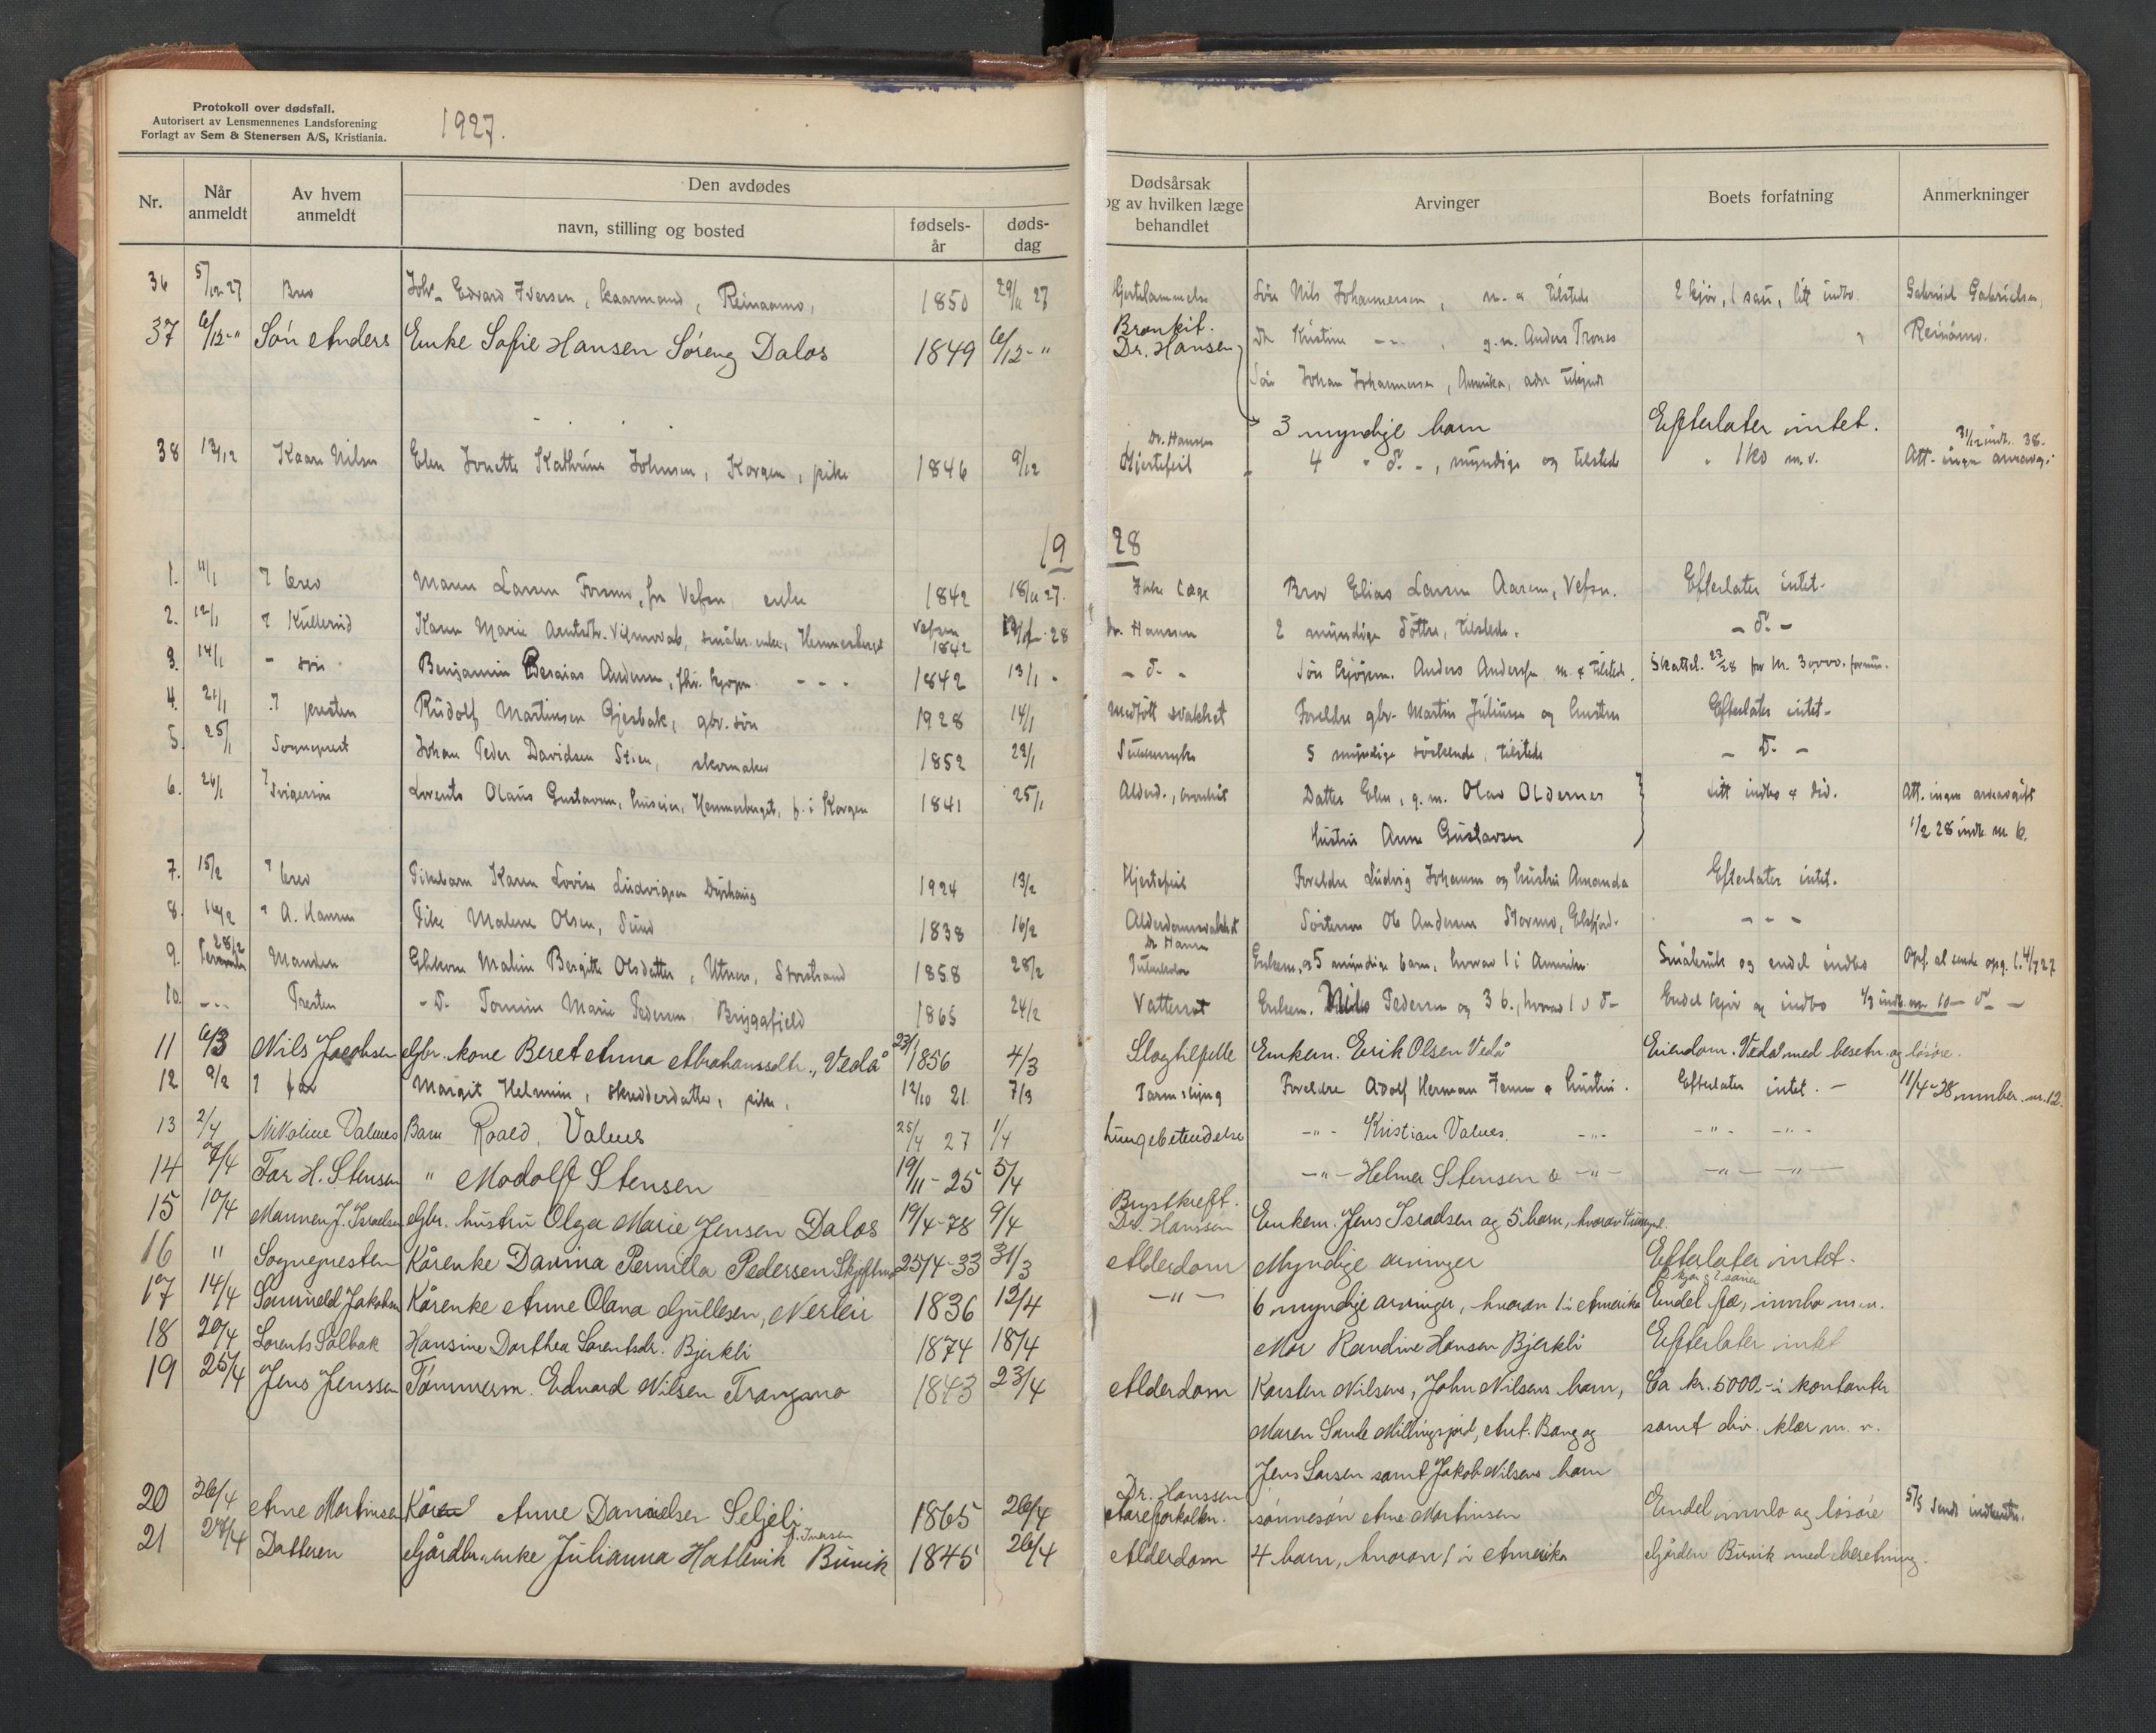 Protokoll over dødsfall.
Autorisert av Lensmennenes Landsforening
Forlagt av Sem & Stenersen A/S, Kristiania.
1927.
Nr. Når anmeldt Av hvem anmeldt Den avdødes navn, stilling og bosted fødselsår dødsdag Dødsårsak og av hvilken læge behandlet Arvinger Boets forfatning Anmerkninger
36 5/12 27 Brev Joh. Edvard Iversen, kaarmand, Reinaamo, 1850 29/11 27 Hjertelammelse Søn Nils Johannessen, m. & tilstede 2 kjør, 1 sau, litt indbo Gabriel Gabrielsen,
37 6/12 " Søn Anders Enke Sofie Hansen Søreng Dalos 1849 6/12 - " Bronkit. Dr. Hansen Dtr Kristine - " - g.m. Anders Trones Reinåmo.
Søn Johan Johannessen, Amerika, adr.
3 myndige barn Efterlater intet.
38 13/12 Kaare Nilsen Elen Jonette Kathrine Johnsen, Korgen, pike 1846 9/12 Dr. Hanssen Hjertefeil 4 " d. -, myndige og tilstede " 1 ko m.v. 31/12 indb. 38. Att. ingen arveavg.
19 28
1. 11/1 brev Larsen Forsmo, fra Vefsn, enke 1842 18/11 27. Bror Elias Larsen Aarem, Vefsn. Efterlater intet.
2. 12/1 Karen Marie småbr. enke, Hemnesberget Vefsn 1842 28 Dr. Hanssen 2 myndige døttre, tilstede. - d. -
3. 14/1 - søn Benjamin Andersen, fhv. kjøpm. - - - 1842 13/1 - - d. - Søn kjøpm. Anders Andersen m. & tilstede. Skattel. for kr. 30,000. formue.
4. 21/1 presten Rudolf Martinsen Gjesbak, gbr. søn 1928 14/1 Medfött svakhet Foreldre gbr. Martin Juliussen og hustru Efterlater intet.
5. 25/1 Sogneprest Johan Peder Davidsen Stien, skomaker 1852 22/1 5 myndige søskende, tilstede - d. -
6. 26/1 Svigersøn Lorents Olaus Gustavsen, huseier, Hemnesberget, f. i Korgen 1841 25/1 Alderd., bronkit Datter Elen, g.m. Olav Oldernes Litt indbo & div. Att. ingen arveavgift
hustru Anne Gustavsen 1/2 28 indb. nr. 6.
7. 15/2 brev Pikebarn Karen Lovise Ludvigsen Dyrhaug 1924 13/2 Hjertefeil Foreldre Ludvig Johansen og hustru Amanda Efterlater intet.
8. 16/2 A. Hansen Pike Malene Olsen, Sund 1838 16/2 Alderdomssvakhet Søstersøn Ole Andersen Stormo, Elsfjord. - - -
9. 28/2 Manden Gbkone Malin Bergitte Olsdatter, Utnes, Storstrand 1858 28/2 Dr Hansen Tuberkulose Enkem. og 5 myndige barn, hvorav 1 i Amerika Småbruk og endel indbo
10. - " - Presten - d. - Marie Pedersen, Bryggfjeld 1865 24/2 Vattersot Enkem. Nils Pedersen og 3 b., hvorav 1 u d - Endel kjør og indbo
11 6/3 Nils Jacobsen Gbr. kone Beret Anna Abrahamsdtr., Vedå 23/1 1856 4/3 Slagtilfelle Enkem. Erik Olsen Vedå Eiendom. Vedå med besetn. og løsøre.
12 9/2 far Margit Helmine, skredderdatter, pike, 12/10 21 7/3 Tarmslyng Foreldre Adolf Herman Jensen & hustru. Efterlater intet. - 11/4-28 nr. 12.
13 2/4 Nikoline Valnes Barn Roald, Valnes 25/4 27 1/4 Lungebetendelse - " - Kristian Valnes. - " - - " - - " -
14 7/4 Far H. Stensen " Modolf Stensen 19/11 - 25 5/4 - " - Helmer Stensen & - " - - " - - " -
15 10/4 Mannen J. Israelsen Gbr. hustru Olga Marie Jensen Dalos 19/4-78 9/4 Brystkreft. Dr. Hanssen Enkem. Jens Israelsen og 5 barn, hvorav 4 umynd.
16 " Sognepresten Kårenke Danina Pernilla Pedersen 25/4-33 31/3 Alderdom Myndige arvinger Efterlater intet.
17 14/4 Kårenke Anne Olana Gjullesen, Nerleir 1836 12/4 - " - 6 myndige arvinger, hvorav 1 i Amerika 2 kjør & 2 sauer Endel fæ, innbo m.v.
18 20/4 Lorents Sølbak Hansine Dorthea Lorentsdr. Bjerkli 1874 18/4 Mor Randine Hansen Bjerkli Efterlater intet
19 25/4 Jens Jenssen Tømmerm. Edvard Nilsen Trangmo 1843 23/4 Alderdom Karsten Nilsens, John Nilsens barn, Ca kr. 5000.- i kontanter
Maren Sande Millingsjord, Ant. Bang og samt div. klær m.v.
Jens Larsen samt Jakob Nilsens barn
20 26/4 Arne Martinsen Kåre Anne Danielsen Seljeli 1865 26/4 Dr. Hanssen Aareforkalkn. sønnesøn Arne Martinsen Endel innbo og løsøre 5/5 sendt
21 27/4 Datteren Gårdbr. enke Julianna Hatlevik f. Iversen Bunik 1845 26/4 Alderdom 4 barn, hvorav 1 i Amerika Gården Bunik med besetning.